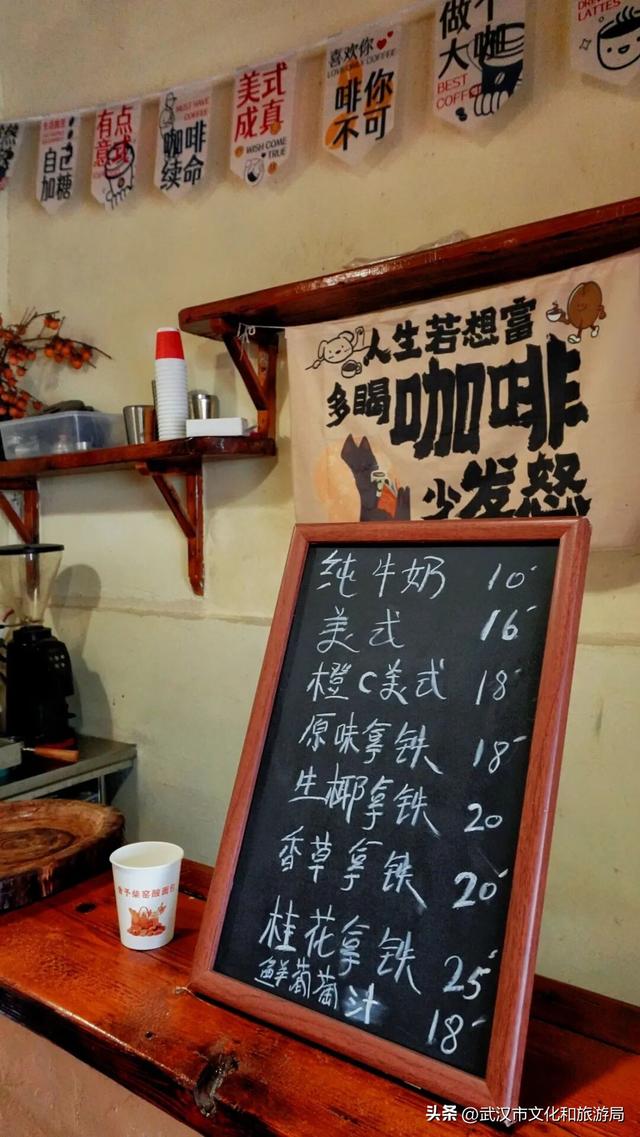 自己
加糖
有点
意式
MUST HAVE
COFFEE
咖啡
续命
美式
成真
WISH COME
TRUE
喜欢你
LOVE MAX COFFEE
啡你
不可
做个
大咖
BEST
COFF
LATTES
人生若想富
多喝咖啡
少发怒
纯牛奶 10
美式 16
橙C美式 18
原味拿铁 18
生椰拿铁 20
香草拿铁 20
桂花拿铁 25
鲜葡萄汁 18
舍予柴窑酸面包
头条 @武汉市文化和旅游局